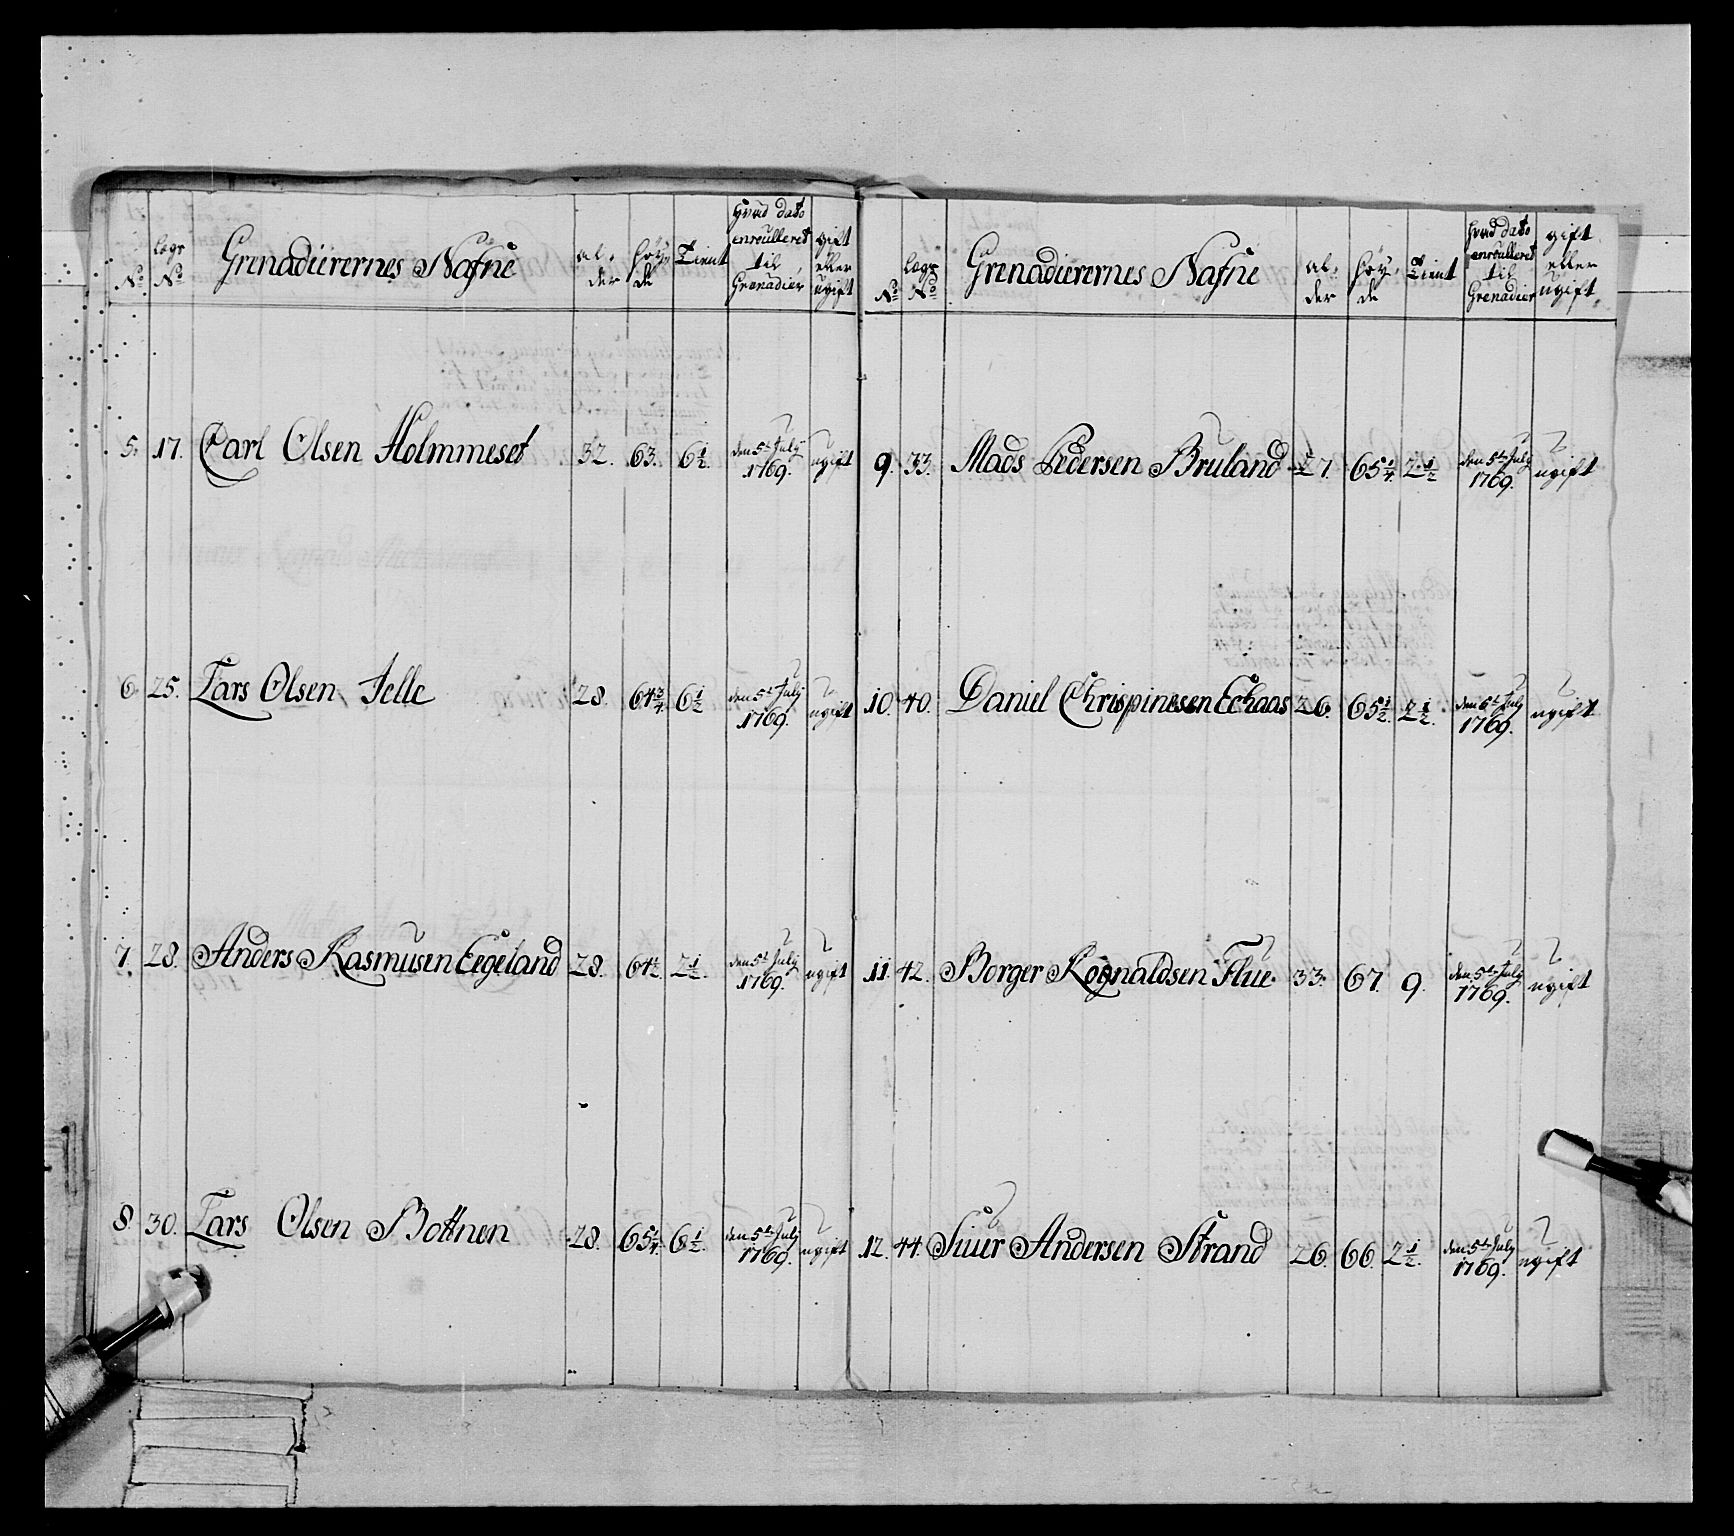 No. Legs No. Grenadierernes Nafne al: der Höy de Tient Hvad dato enroulleret til Grenadier gift eller ugift
5. 17. Carl Olsen Holmmeset 32. 63. 6 1/2. den 5te July 1769. ugift
6. 25. Lars Olsen Felle 28. 64 3/4 6 1/2 den 5te July 1769. ugift
7. 28. Anders Rasmusen Eegeland 28. 64 1/2. 2 1/2. den 5te July 1769. ugift
8. 30. Lars Olsen Bottnen 28. 65 1/4. 6 1/2. den 5te July 1769. ugift
No. Legs No. Grenadierernes Nafne al: der Höy: de Tient Hvad dato enroulleret til Grenadier gift eller ugift.
9. 33. Mads Pedersen Bruland 27. 65 1/4. 2 1/2 den 5te July 1769. ugift
10. 40. Daniel Chrispinesen Echaas 26. 65 1/2. 2 1/2. den 5te July 1769. ugift
11. 42. Borger Rognaldsen Flue 33. 67. 9. den 5te July 1769. ugift
12. 44. Siuer Andersen Strand 26. 66. 2 1/2. den 5te July 1769. ugift